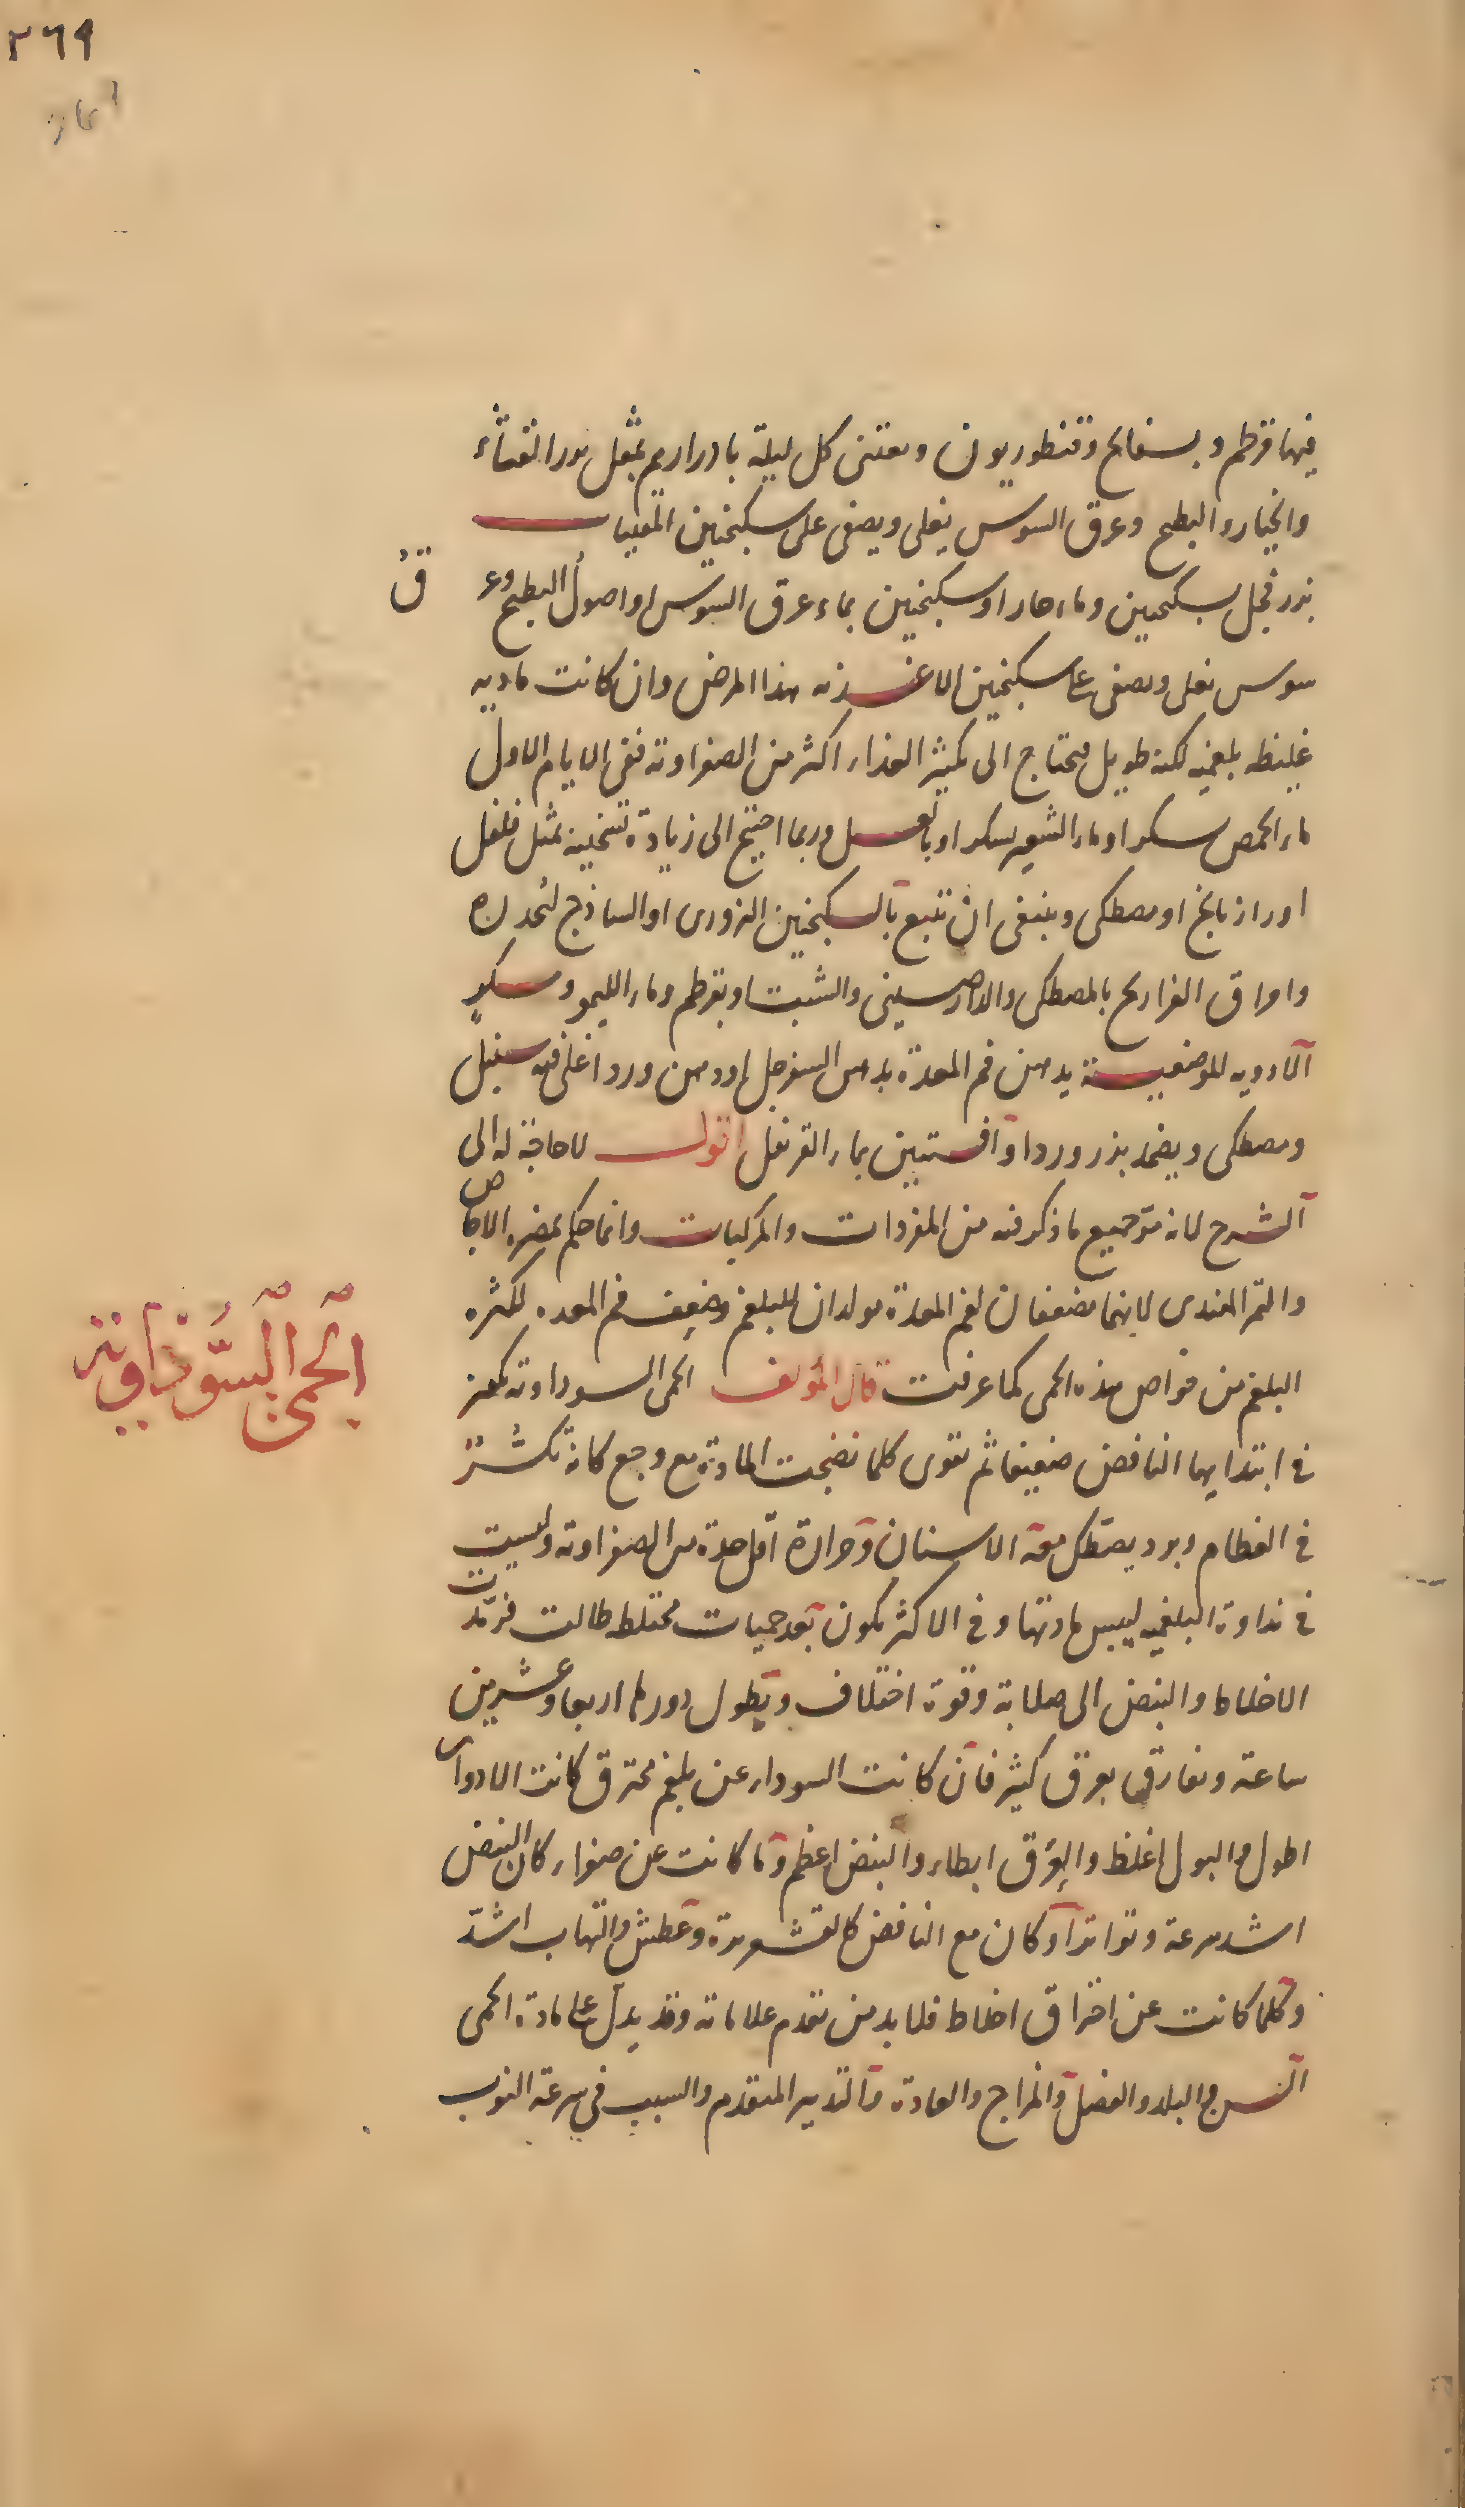 ٢٦٩
فيها قرطم وبسفايج وقنطوريون ويعتنى كل ليلة بادرارهم بمثل بزر القثاء
والخيار والبطيخ وعرق السوس يغلى ويصفى على سكنجبين المقيات
بزر فجل بسكنجبين وماء حار او سكنجبين بماء عرق السوس او اصول البطيخ وعرق
سوس يغلى ويصفى على سكنجبين الاغذيه هذا المرض وان كانت مادته
غليظه بلغميه لكنه طويل فيحتاج الى تكثير الغذاء اكثر من الصفراويه ففى الايام الاول
ماء الحمص بسكر او ماء الشعير بسكر او بالعسل وربما احتيج الى زيادة تسخينه بمثل فلفل
او رازيانج او مصطكى وينبغى ان تتبع بالسكنجبين البزورى او الساذج لتحدره
وامراق الفراريج بالمصطكى والدارصينى والشبت او بقرطم وماء الليمو وسكر
الادويه الموضعيه يدهن فم المعدة بدهن السفرجل او دهن ورد اغلى فيه سنبل
ومصطكى ويضمد بزر ورد او افسنتين بماء القرنفل اقول لا حاجة له الى
الشرح لانه مر جميع ما ذكر فيه من المفردات والمركبات وانما حكم بمضره الاجاص
والتمر الهندى لانهما مضعفان لفم المعدة مولدان للبلغم وضعف فم المعده لكثره
البلغم من خواص هذه الحمى كما عرفت قال المؤلف الحمى السوداويه يكون
الحمى السوداوية
فى ابتدايها النافض ضعيفا ثم تقوى كلما نضجت المادة مع وجع كانه تكسر
فى العظام وبرد يصطك معه الاسنان وحرارة اقل حدة من الصفراويه وليست
فى نداوة البلغميه ليبس مادتها وفى الاكثر يكون بعد حميات مختلطه طالت فرمدت
الاخلاط والنبض الى صلابة وقوة اختلاف ويطول دورها اربعا وعشرين
ساعة وتفارق بعرق كثير فان كانت السوداء عن بلغم محترق كانت الادوار
اطول والبول اغلظ والعرق ابطاء والنبض اعظم وما كانت عن صفراء كان النبض
اشد سرعة وتواترا وكان مع النافض كالقشعريرة وعطش والتهاب اشد
وكلما كانت عن احتراق اخلاط فلا بد من تقدم علاماته وقد يدل على مادة الحمى
السن والبلد والفصل والمزاج والعادة والتدبير المتقدم والسبب فى سرعة النوب